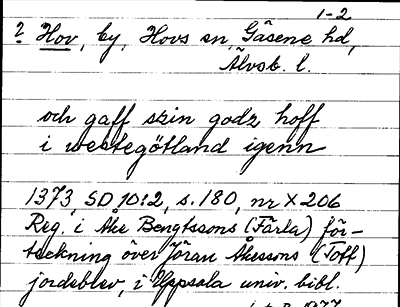 1-2
? Hov, by, Hovs sn, Gäsene hd,
Älvsb. l.
och gaff szin godz hoff
i westegötland igenn
1373, SD 10:2, s. 180, nr X 206
Reg. i Åke Bengtssons (Färla) för-
teckning över Jöran Åkessons (Tott)
jordebrev, i Uppsala univ. bibl.